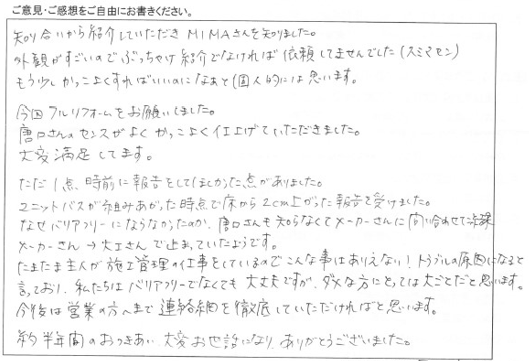 ご意見・ご感想をご自由にお書きください。
知り合いから紹介していただき MIMAさんを知りました。
外観がすごいので ぶっちゃけ紹介でなければ 依頼してませんでした(スミマセン)
もう少しかっこよくすればいいのになぁと個人的には思います。
今回フルリフォームをお願いしました。
唐口さんのセンスがよく かっこよく仕上げていただきました。
大変満足してます。
ただ1点、時前に報告をしてほしかった点がありました。
ユニットバスが組みあがった時点で床から2cm上がった報告を受けました。
なぜバリアフリーにならなかったのか、唐口さんも知らなくてメーカーさんに問い合わせた結果
メーカーさん→大工さんで止まっていたようです。
たまたま主人が施工管理の仕事をしているので こんな事はありえない!トラブルの原因になると
言っており、私たちはバリアフリーでなくても大丈夫ですが、ダメな方にとっては大ごとだと思います。
今後は営業の方へまで連絡網を徹底していただければと思います。
約半年間のおつきあい 大変お世話になり、ありがとうございました。